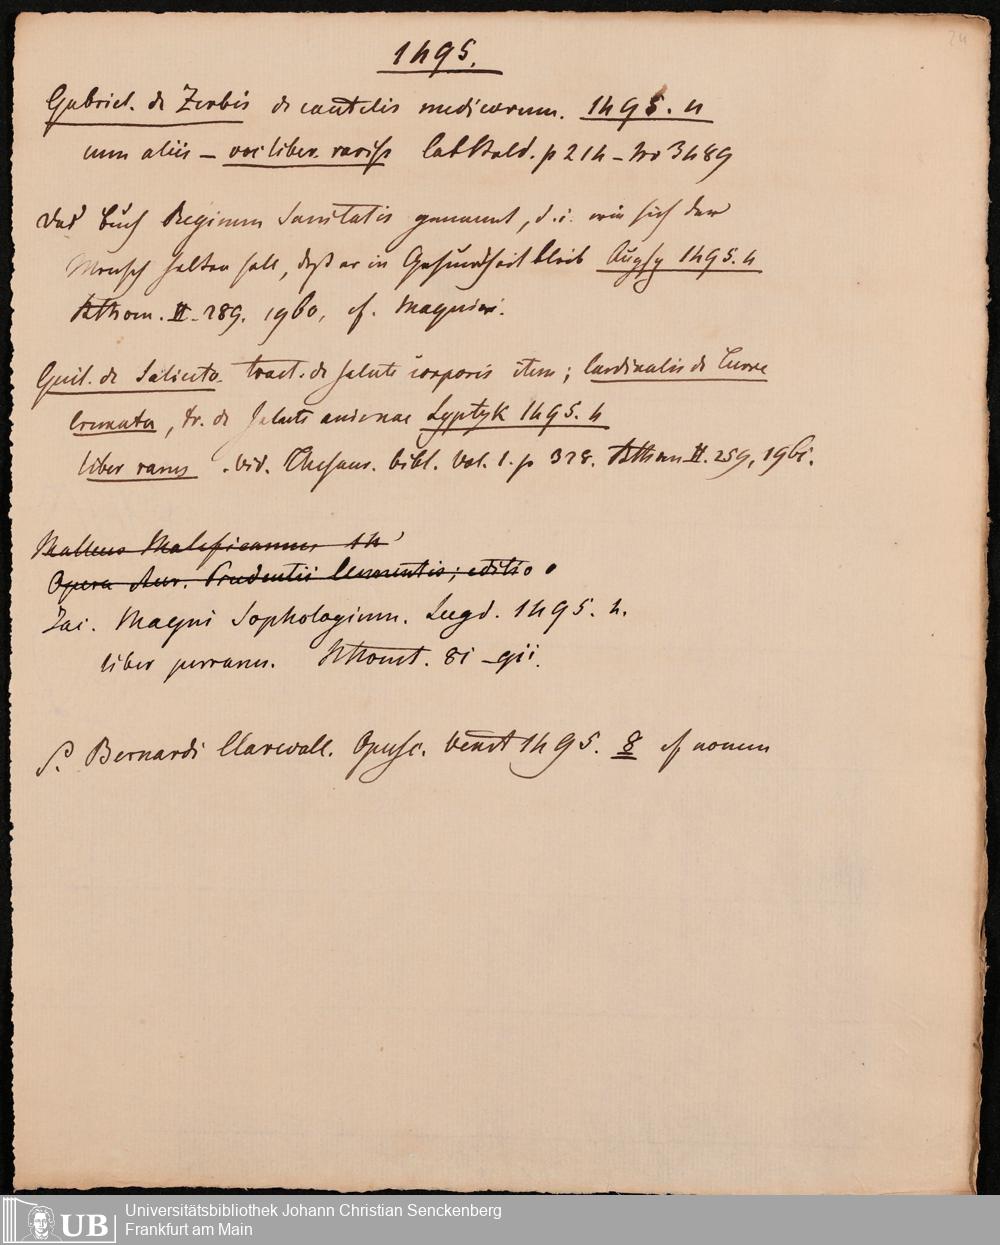 24
1495.
Gabriel. de Zerbis de cautelis medicorum. 1495. 4
cum aliis – voc liber. rariss Cat Bald. p 214 – No 3489
Das Buch Regimen Sanitatis genannt, d. i. wie sich der
Mensch halten soll, daß er in Gesundheit bleib Augsp 1495. 4
II. 289. 1960, cf. Magnini.
Guil. de Saliceto. tract. de salute corporis item; Cardinalis de Turre
Cremata, tr. de Salute animae Lyptzk 1495. 4
liber rarus . vid. Thesaur. bibl. Vol. 1. p 328. II. 259, 1961.
Malleus Maleficarum 14
Opera Aur. Prudentii Clementis; editio
Jac. Magni Sophologium. Lugd. 1495. 4.
liber perrarus. 81
S. Bernardi Claravall. Opusc. Venet 1495. 8 cf nomen
Universitätsbibliothek Johann Christian Senckenberg
UB Frankfurt am Main